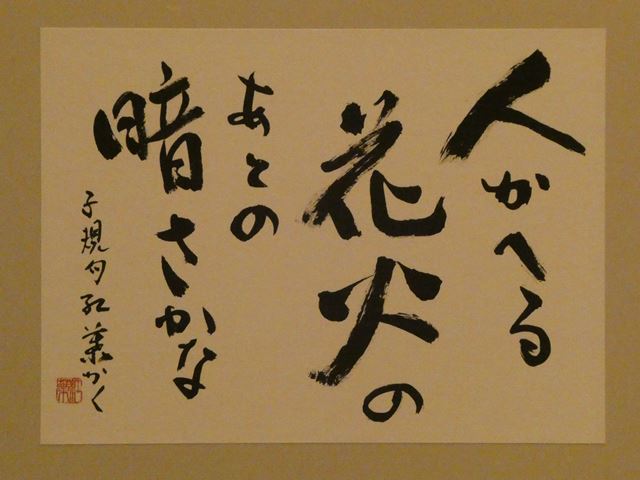 人かへる
花火の
あとの
暗さかな
子規句 紅葉かく